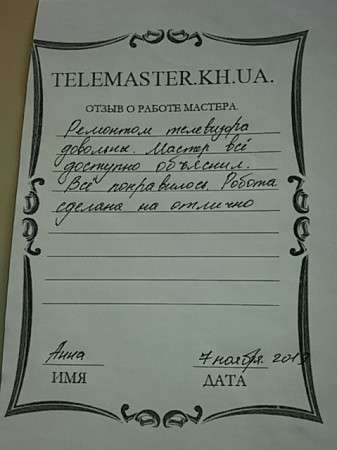 TELEMASTER.KH.UA.
ОТЗЫВ О РАБОТЕ МАСТЕРА
Ремонтом телевизора
довольны. Мастер всё
доступно объяснил.
Всё понравилось. Работа
сделана на отлично
Анна 7 ноября
ИМЯ ДАТА